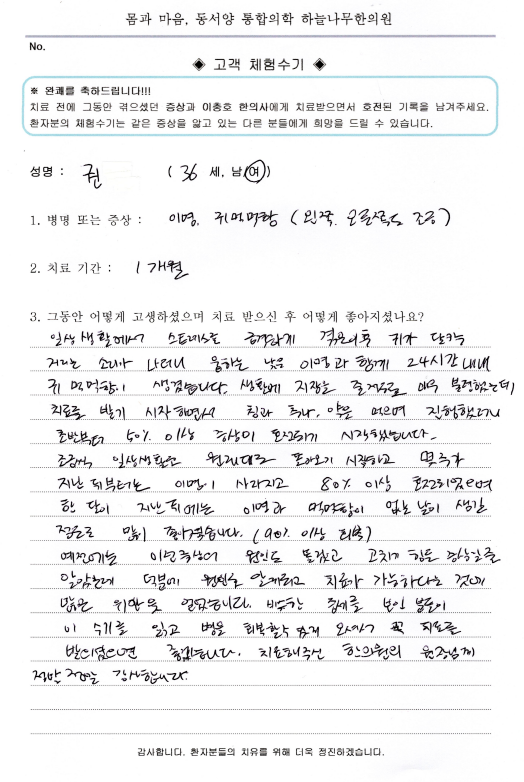 몸과 마음, 동서양 통합의학 하늘나무한의원
No.
◈ 고객 체험수기 ◈
※ 완쾌를 축하드립니다!!!
치료 전에 그동안 겪으셨던 증상과 이종호 한의사에게 치료받으면서 호전된 기록을 남겨주세요.
환자분의 체험수기는 같은 증상을 앓고 있는 다른 분들에게 희망을 드릴 수 있습니다.
성명 : 권 ( 36 세, 남/여)
1. 병명 또는 증상 : 이명, 귀먹먹함 (왼쪽, 오른쪽도 조금)
2. 치료 기간 : 1개월
3. 그동안 어떻게 고생하셨으며 치료 받으신 후 어떻게 좋아지셨나요?
일상생활에서 스트레스를 급격하게 겪은 이후 귀가 달카닥
거리는 소리가 나더니 웅하는 낮은 이명과 함께 24시간 내내
귀 먹먹함이 생겼습니다. 생활에 지장을 줄 정도로 매우 불편했는데
치료를 받기 시작하면서 침과 뜸, 약을 먹으며 진행했더니
초반부터 50% 이상 증상이 호전되기 시작했습니다.
조금씩 일상생활도 원래대로 돌아오기 시작하고 몇주가
지난 뒤부터는 이명이 사라지고 80% 이상 호전되었으며
한 달이 지난 뒤에는 이명과 먹먹함이 없는 날이 생길
정도로 많이 좋아졌습니다. (90% 이상 회복)
예전에는 이런 증상이 원인도 모르고 고치기 힘든 증상인줄
알았는데 덕분에 원인을 알게되고 치료가 가능하다는 것에
많은 위안을 얻었습니다. 비슷한 증세를 보인 분들이
이 수기를 읽고 병을 회복할 수 있게 와서 꼭 치료를
받으셨으면 좋겠습니다. 치료해주신 한의원의 원장님께
정말 정말 감사합니다.
감사합니다. 환자분들의 치유를 위해 더욱 정진하겠습니다.